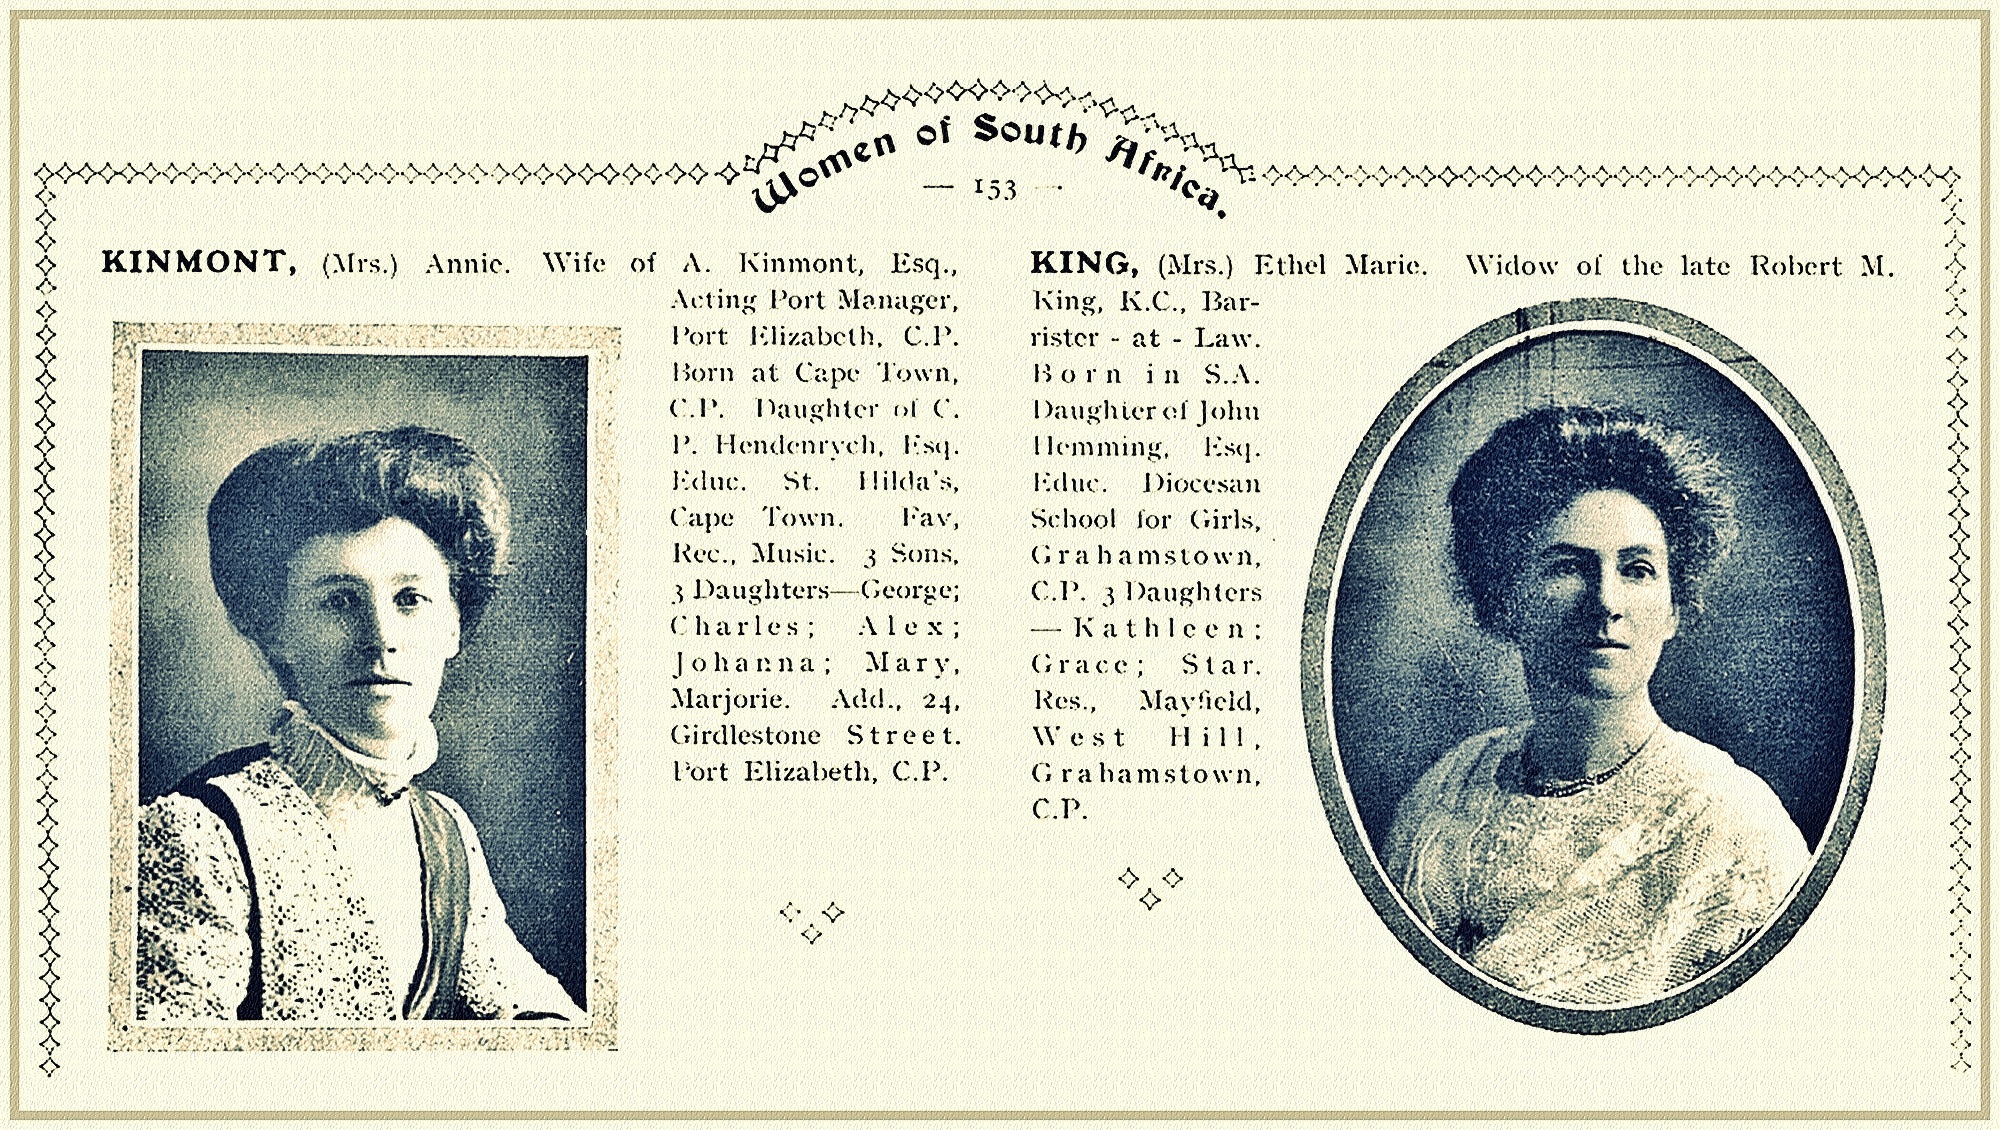 Women of South Africa.
— 153 —
KINMONT, (Mrs.) Annie. Wife of A. Kinmont, Esq.,
Acting Port Manager,
Port Elizabeth, C.P.
Born at Cape Town,
C.P. Daughter of C.
P. Hendenrych, Esq.
Educ. St. Hilda's,
Cape Town. Fav,
Rec., Music. 3 Sons,
3 Daughters—George;
Charles; Alex;
Johanna; Mary,
Marjorie. Add., 24,
Girdlestone Street.
Port Elizabeth, C.P.
KING, (Mrs.) Ethel Marie. Widow of the late Robert M.
King, K.C., Bar-
rister - at - Law.
Born in S.A.
Daughter of John
Hemming, Esq.
Educ. Diocesan
School for Girls,
Grahamstown,
C.P. 3 Daughters
— Kathleen;
Grace; Star.
Res., Mayfield,
West Hill,
Grahamstown,
C.P.